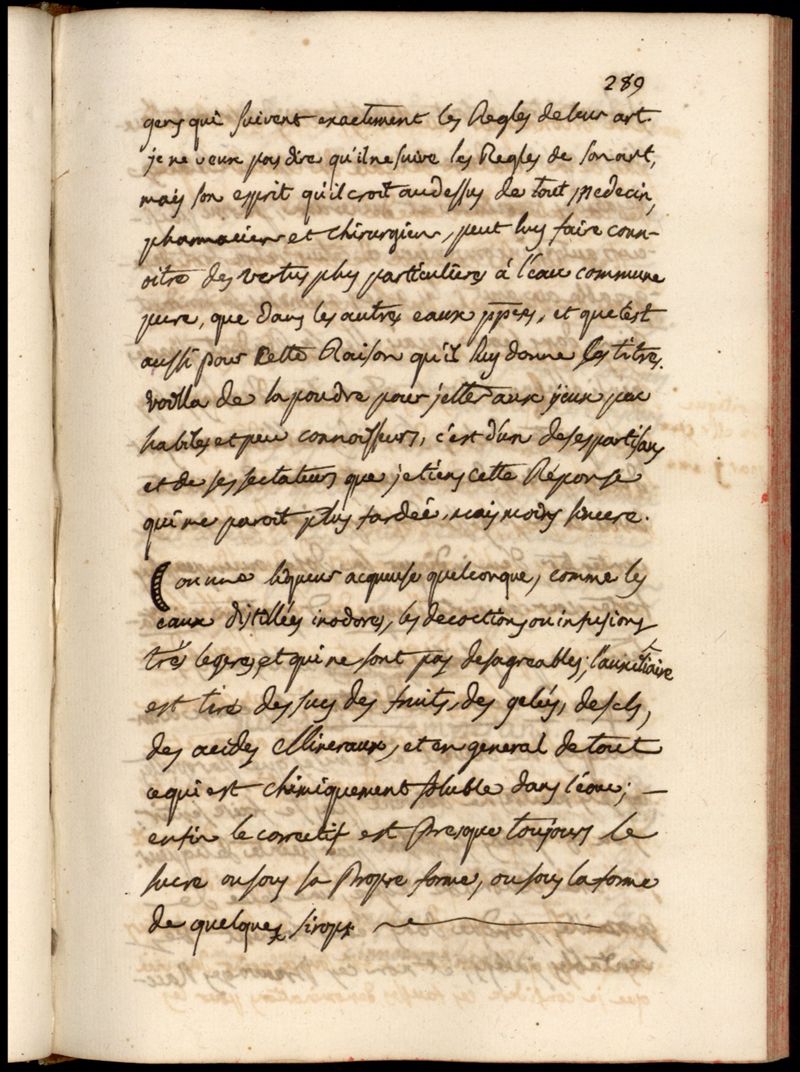 289
gens qui suivent exactement les Regles de leur art.
je ne veux pas dire qu'il ne suive les Regles de son art,
mais son esprit qu'il croit audessus de tout medecin,
pharmacien et chirurgien, peut luy faire conn-
oitre des vertus plus particulieres á l'eau commune
pure, que dans les autres eaux ppres, et que c'est
aussi pour cette Raison qu'il luy donne les titres.
voilla de la poudre pour jetter aux yeux peu
habiles et peu connoisseurs, c'est d'un de ses partisans
et de ses sectateurs que je tiens cette Réponse
qui me paroit plus fardeé, mais moins sincere.
(ou une liqueur acqueuse quelconque, comme les
eaux distillées inodores, les decoctions ou infusions
trés legeres, et qui ne sont pas desagreables; l'auxiliaire
est tiré des sucs des fruits, des geleés, de sels,
des acides Mineraux, et en general de tout
ce qui est chimiquement soluble dans l'eau; —
enfin le correctif est Presque toujours le
sucre ou sous sa Propre forme, ou sous la forme
de quelques sirops